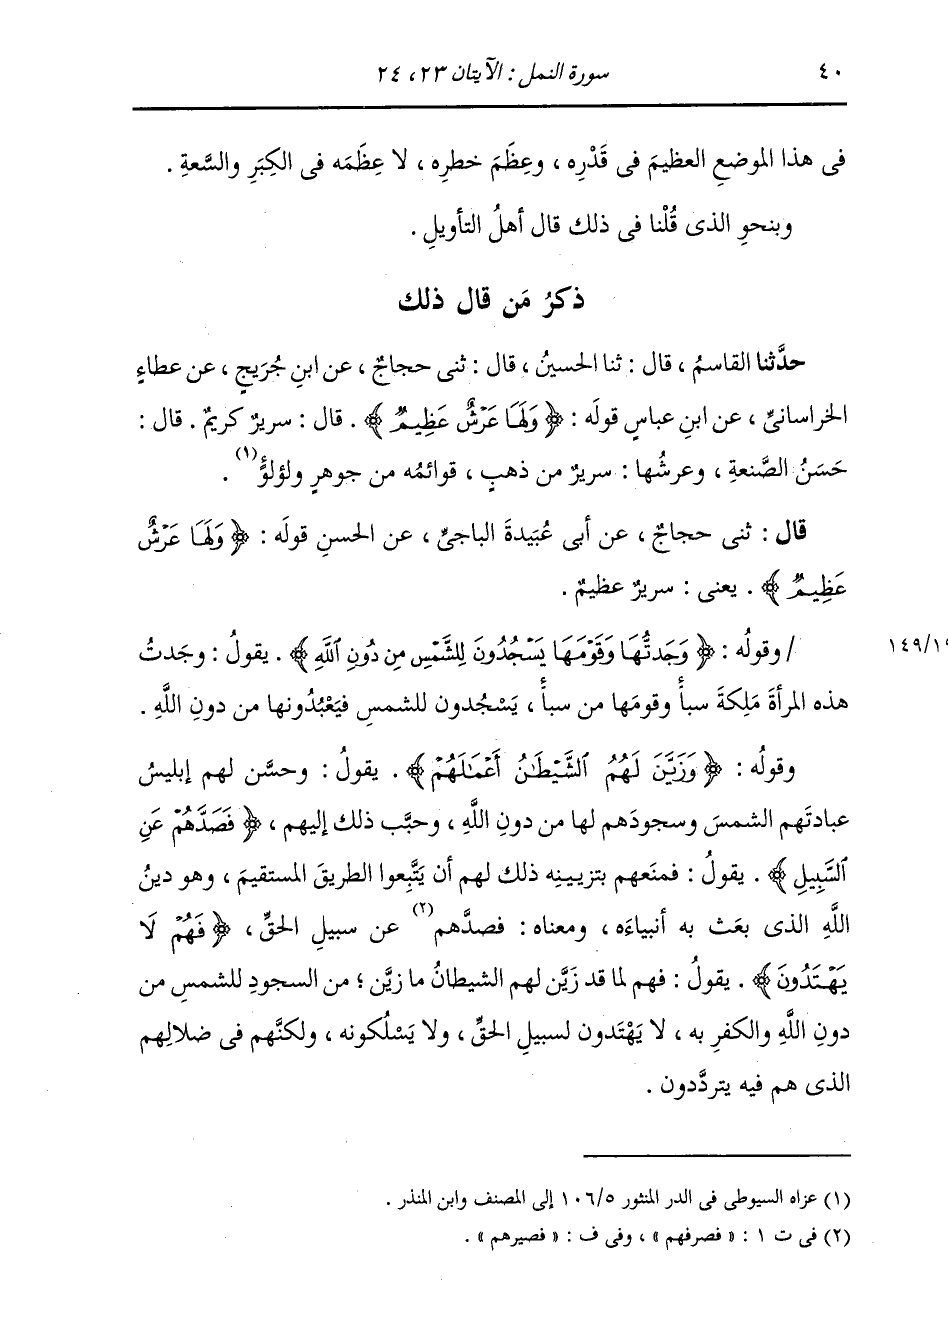 ٤٠ سورة النمل : الآيتان ٢٣، ٢٤
فى هذا الموضعِ العظيمَ فى قَدْرِه ، وعِظَمَ خطرِه ، لا عِظَمَه فى الكِبَرِ والسَّعةِ .
وبنحوِ الذى قُلْنا فى ذلك قال أهلُ التأويلِ .
ذكرُ مَن قال ذلك
حدَّثنا القاسمُ ، قال : ثنا الحسينُ ، قال : ثنى حجاجٌ ، عن ابنِ جُرَيجٍ ، عن عطاءٍ
الخراسانىِّ ، عن ابنِ عباسٍ قولَه : ﴿ وَلَهَا عَرْشٌ عَظِيمٌ ﴾ . قال : سريرٌ كريمٌ . قال :
حَسَنُ الصَّنعةِ ، وعرشُها : سريرٌ من ذهبٍ ، قوائمُه من جوهرٍ ولؤلؤٍ (١) .
قال : ثنى حجاجٌ ، عن أبى عُبَيدةَ الباجىِّ ، عن الحسنِ قولَه : ﴿ وَلَهَا عَرْشٌ
عَظِيمٌ ﴾ . يعنى : سريرٌ عظيمٌ .
/ وقولُه : ﴿ وَجَدتُّهَا وَقَوْمَهَا يَسْجُدُونَ لِلشَّمْسِ مِن دُونِ ٱللَّهِ ﴾ . يقولُ : وجَدتُ
هذه المرأةَ مَلِكةَ سبأً وقومَها من سبأً ، يَسْجُدون للشمسِ فيَعْبُدُونها من دونِ اللَّهِ .
وقولُه : ﴿ وَزَيَّنَ لَهُمُ ٱلشَّيْطَٰنُ أَعْمَٰلَهُمْ ﴾ . يقولُ : وحسَّن لهم إبليسُ
عبادتَهم الشمسَ وسجودَهم لها من دونِ اللَّهِ ، وحبَّب ذلك إليهم ، ﴿ فَصَدَّهُمْ عَنِ
ٱلسَّبِيلِ ﴾ . يقولُ : فمنَعهم بتزيينِه ذلك لهم أن يَتَّبِعوا الطريقَ المستقيمَ ، وهو دينُ
اللَّهِ الذى بعَث به أنبياءَه ، ومعناه : فصدَّهم (٢) عن سبيلِ الحقِّ ، ﴿ فَهُمْ لَا
يَهْتَدُونَ ﴾ . يقولُ : فهم لما قد زَيَّن لهم الشيطانُ ما زيَّن ؛ من السجودِ للشمسِ من
دونِ اللَّهِ والكفرِ به ، لا يَهْتَدون لسبيلِ الحقِّ ، ولا يَسْلُكونه ، ولكنَّهم فى ضلالِهم
الذى هم فيه يتردَّدون .
(١) عزاه السيوطى فى الدر المنثور ١٠٦/٥ إلى المصنف وابن المنذر .
(٢) فى ت ١ : « فصرفهم » ، وفى ف : « فصيرهم » .